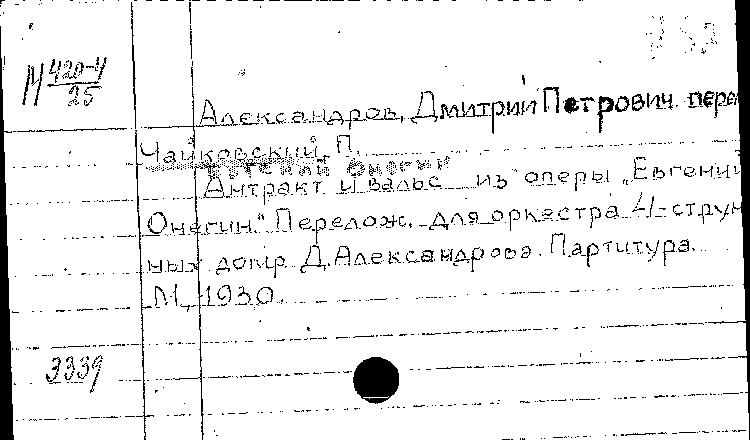 М 420-4
25
Александров, Дмитрий Петрович. пере
Чайковский, П.
Евгений Онегин
Антракт и вальс из оперы „Евгений
Онегин." Перелож. для оркестра 4-струн
ных домр Д. Александрова. Партитура.
М., 1930.
3339